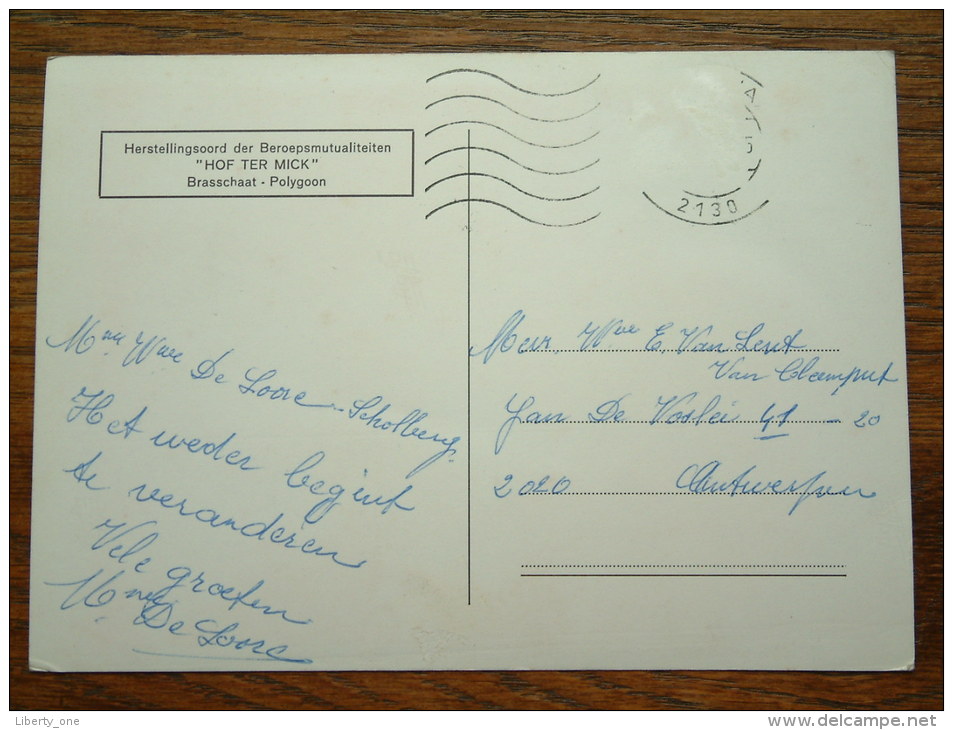 Herstellingsoord der Beroepsmutualiteiten
"HOF TER MICK"
Brasschaat - Polygoon
2130
Mme Wwe De Loore - Scholberg.
Het weder begint
te veranderen
Vele groeten
Mme De Loore
Mevr. Wwe E. Van Lent
Van Clamput
Jan De Voslei 41 - 20
2020 Antwerpen
Liberty_one
www.delcampe.net